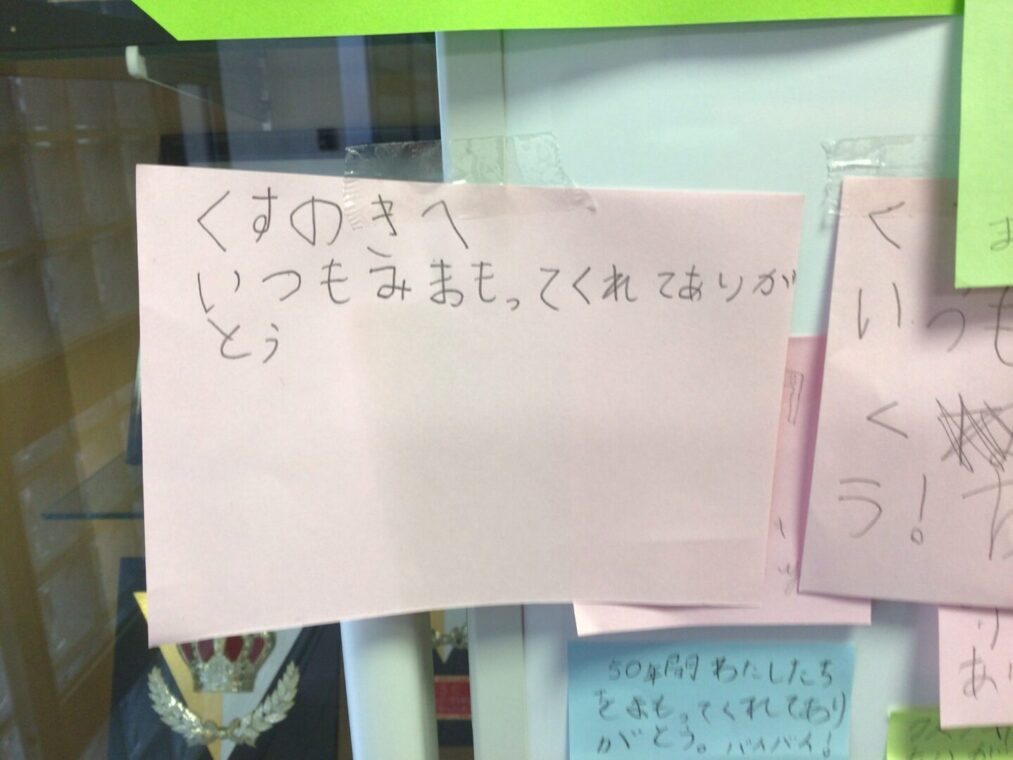 くすのきへ
いつもみまもってくれてありが
とう
く
いつも
く
う!
50年間わたしたち
をまもってくれてあり
がとう。バイバイ!
あり